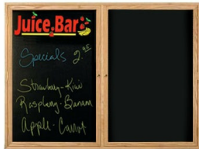 Juice Bar
Specials 2.95
Strawberry-Kiwi
Raspberry Banana
Apple-Carrot